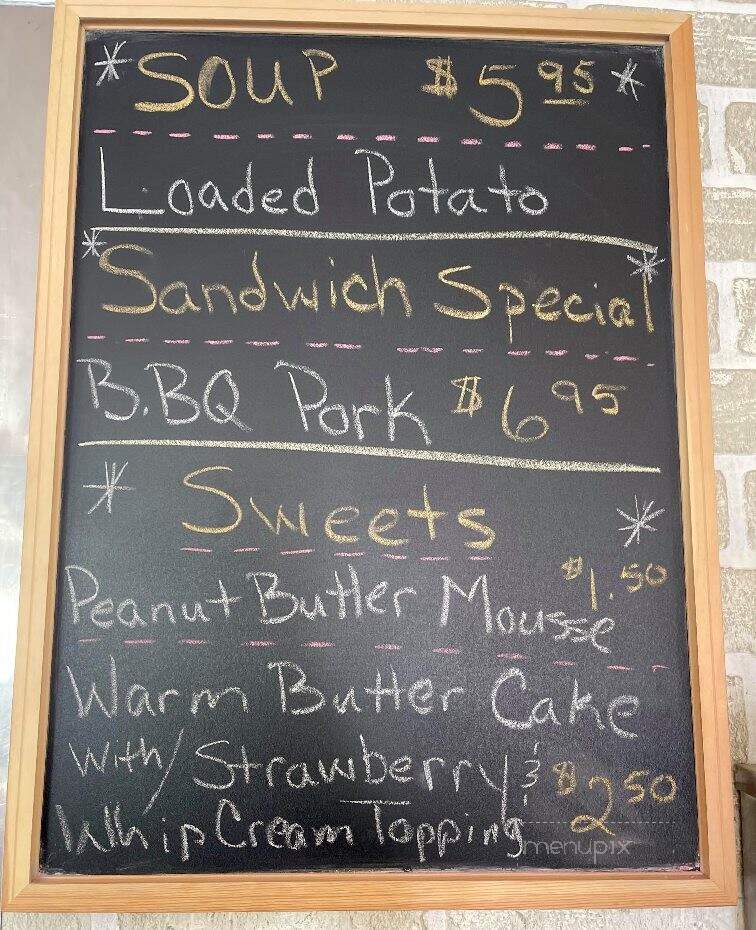 * SOUP $5.95 *
Loaded Potato
* Sandwich Special *
B.BQ Pork $6.95
* Sweets *
Peanut Butter Mousse $1.50
Warm Butter Cake
With/ Strawberry & $2.50
Whip Cream Topping
menupix